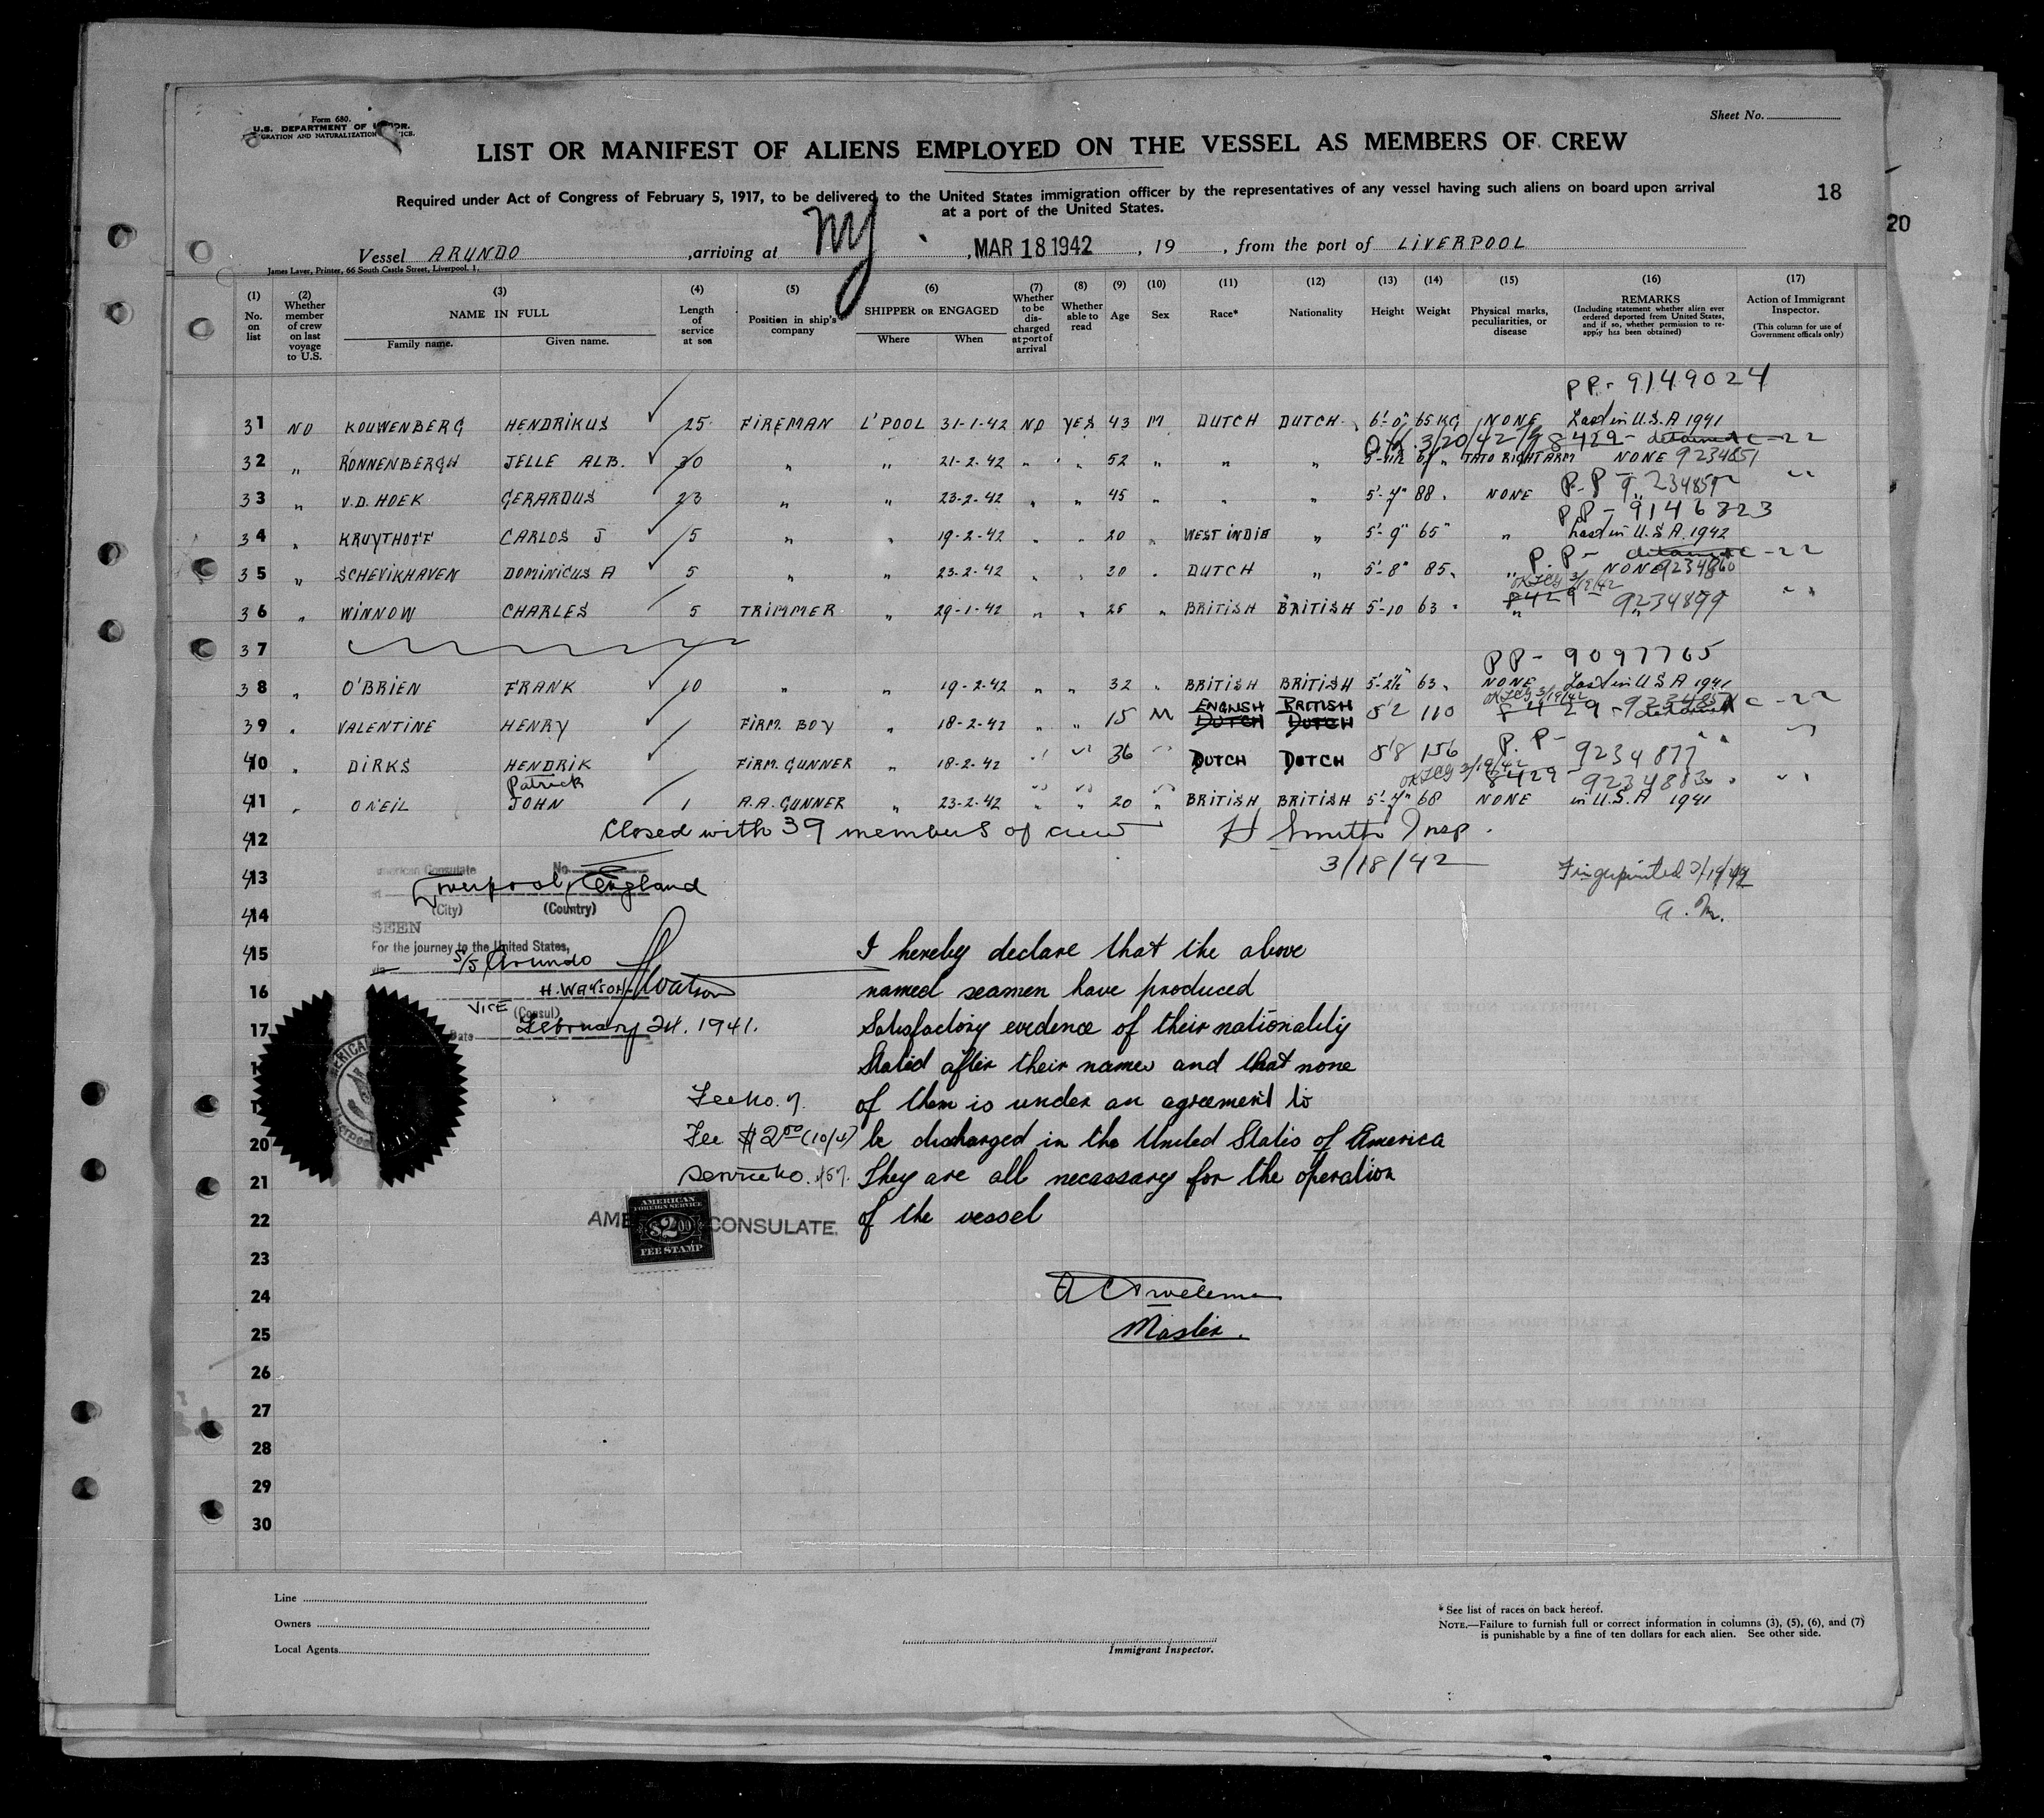 Form 680.
U.S. DEPARTMENT OF
GRATION AND NATURALIZATION
Sheet No.
LIST OR MANIFEST OF ALIENS EMPLOYED ON THE VESSEL AS MEMBERS OF CREW
Required under Act of Congress of February 5, 1917, to be delivered to the United States immigration officer by the representatives of any vessel having such aliens on board upon arrival
at a port of the United States.
18
20
Vessel ARUNDO, arriving at NY, MAR 18 1942, 19 , from the port of LIVERPOOL
James Laver, Printer, 66 South Castle Street, Liverpool. 1.
(1) No. on list
(2) Whether member of crew on last voyage to U.S.
(3) NAME IN FULL Family name. Given name.
(4) Length of service at sea
(5) Position in ship's company
(6) SHIPPER OR ENGAGED Where When
(7) Whether to be discharged at port of arrival
(8) Whether able to read
(9) Age
(10) Sex
(11) Race*
(12) Nationality
(13) Height
(14) Weight
(15) Physical marks, peculiarities, or disease
(16) REMARKS (Including statement whether alien ever ordered deported from United States, and if so, whether permission to re-apply has been obtained)
(17) Action of Immigrant Inspector. (This column for use of Government officals only)
PP- 9149024
31 NO KOUWENBERG HENDRIKUS 25 FIREMAN L'POOL 31-1-42 NO YES 43 M DUTCH DUTCH 6'-0" 65 KG NONE Last in U.S.A 1941
3/20/42 8429- detained C-22
32 " RONNENBERGH JELLE ALB. 30 " " 21-2-42 " " 52 " " " TATO RIGHT ARM NONE 9234851
P.P- 9234859
33 " V.D. HOEK GERARDUS 23 " " 23-2-42 " " 45 " " " 5'-7" 88 " NONE "
PP- 9146823
34 " KRUYTHOFF CARLOS J 5 " " 19-2-42 " " 20 " WEST INDIE " 5'-9" 65 " " Last in U.S.A. 1942
P.P- detained C-22
35 " SCHEVIKHAVEN DOMINICUS A 5 " " 23-2-42 " " 30 " DUTCH " 5'-8" 85 " " NONE 9234860
3/19/42 8429- 9234899
36 " WINNOW CHARLES 5 TRIMMER " 29-1-42 " " 25 " BRITISH BRITISH 5'-10 63 " " "
37
PP- 9097765
38 " O'BRIEN FRANK 10 " " 19-2-42 " " 32 " BRITISH BRITISH 5'-2½" 63 " NONE Last in U S A 1941
3/19/42 8429- detained C-22
ENGLISH BRITISH
39 " VALENTINE HENRY 1 FIRM. BOY " 18-2-42 " " 15 M DUTCH DUTCH 5'2 110
P. P- 9234877
40 " DIRKS HENDRIK FIRM. GUNNER " 18-2-42 " " 36 " DUTCH DUTCH 5'8 156
3/19/42 8429- 9234883
Patrick
41 " ONEIL JOHN 1 A.A. GUNNER " 23-2-42 " " 20 " BRITISH BRITISH 5'-7" 68 NONE in U.S.A 1941
42 Closed with 39 members of crew H Smith Insp.
3/18/42
43 American Consulate No.
Liverpool, England
(City) (Country)
Fingerprinted 3/19/42
A. M.
44 SEEN
45 For the journey to the United States,
S/S Arundo
16 H. WATSON HWatson
VICE (Consul)
17 Date February 24. 1941.
I hereby declare that the above
named seamen have produced
Satisfactory evidence of their nationality
Stated after their names and that none
of them is under an agreement to
be discharged in the United States of America
They are all necessary for the operation
of the vessel
Fee No. 7.
20 Fee $2.00 (10/4)
21 Service No.
22 AMERICAN CONSULATE.
AMERICAN FOREIGN SERVICE
$2.00
FEE STAMP
23
24
25 Master.
26
27
28
29
30
Line
Owners
Local Agents
Immigrant Inspector.
* See list of races on back hereof.
NOTE.—Failure to furnish full or correct information in columns (3), (5), (6), and (7)
is punishable by a fine of ten dollars for each alien. See other side.